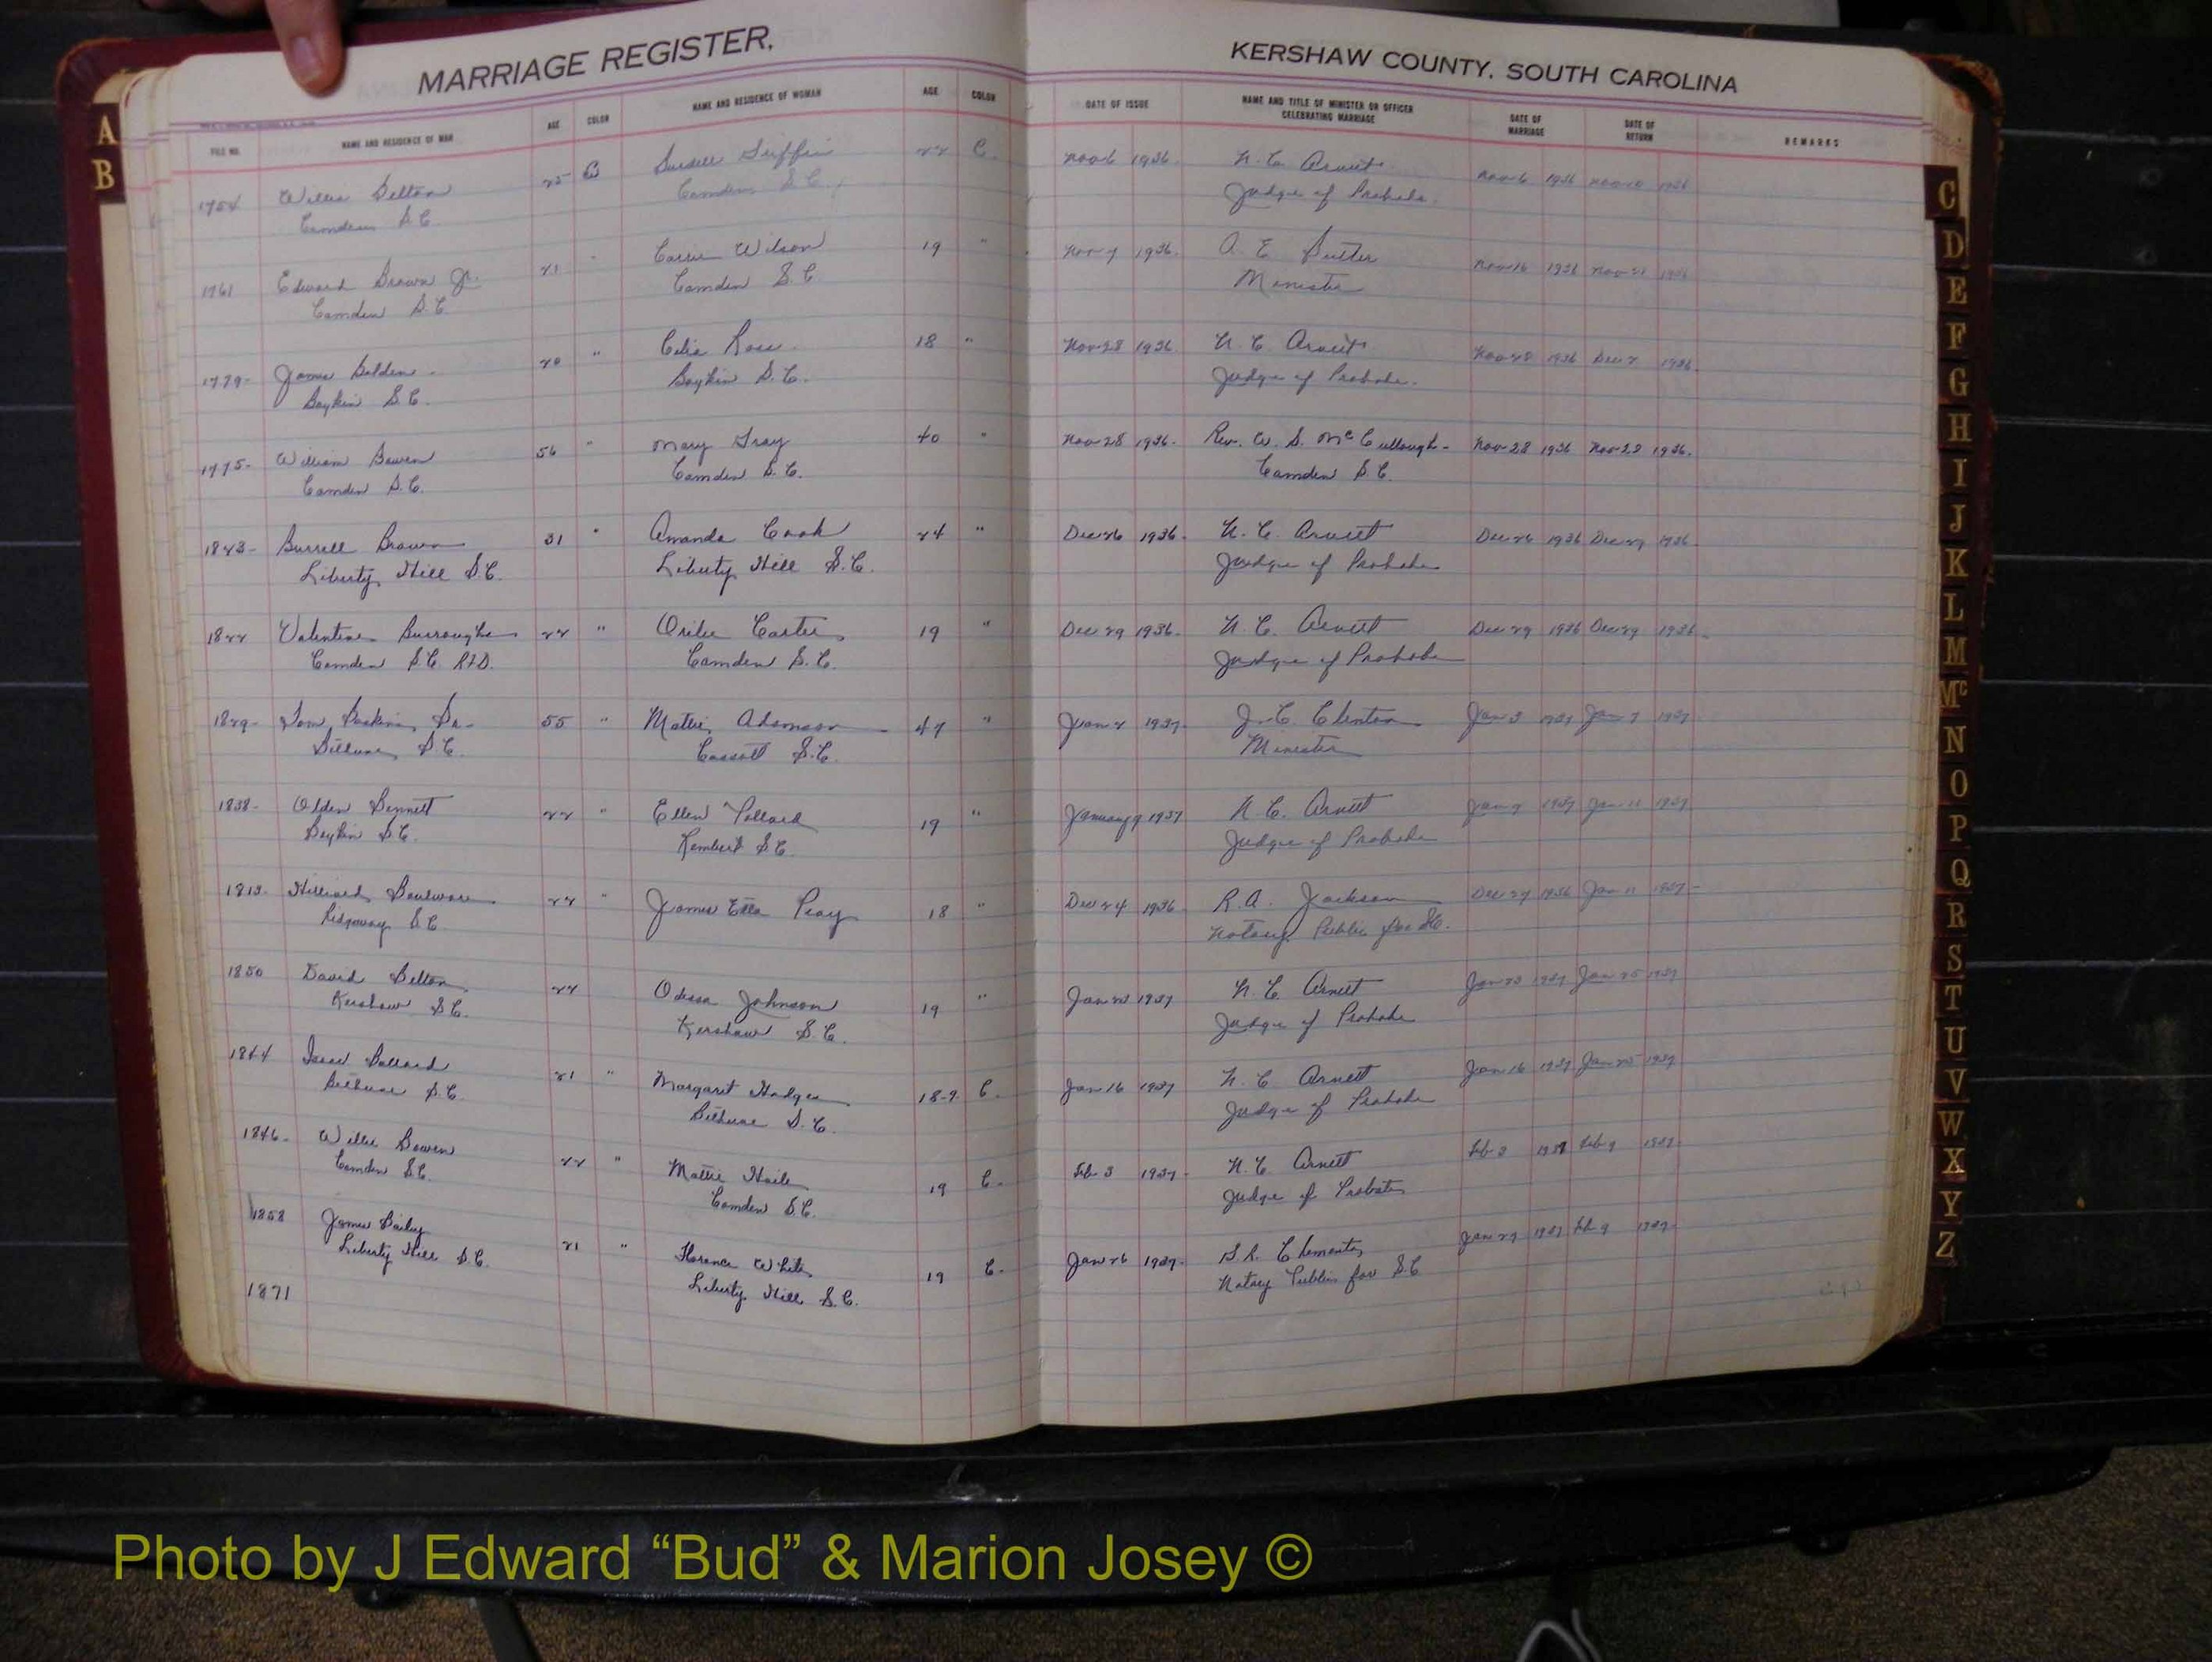 MARRIAGE REGISTER.
KERSHAW COUNTY, SOUTH CAROLINA
FILE NO. NAME AND RESIDENCE OF MAN AGE COLOR NAME AND RESIDENCE OF WOMAN AGE COLOR DATE OF ISSUE NAME AND TITLE OF MINISTER OR OFFICER CELEBRATING MARRIAGE DATE OF MARRIAGE DATE OF RETURN REMARKS
A
B
1754 Willie Belton 25 C 22 C. Nov 6 1936. N. C. Arnett Nov 6 1936 Nov 10 1936
Camden S.C. Camden S.C. Judge of Probate.
1761 Edward Brown Jr. 21 " Carrie Wilson 19 " Nov 7 1936. A. E. Butler Nov 16 1936 Nov 21 1936
Camden S.C. Camden S.C. Minister
1779- James Belden 20 " Celia Rose 18 " Nov 28 1936. N. C. Arnett Nov 28 1936 Dec 2 1936.
Boykin S.C. Boykin S.C. Judge of Probate.
1775- William Bowen 56 " Mary Gray 40 " Nov 28 1936. Rev. W. S. McCullough- Nov 28 1936 Nov 29 1936.
Camden S.C. Camden S.C. Camden S.C.
1823- Burrell Brown 31 " Amanda Cook 24 " Dec 26 1936. N. C. Arnett Dec 26 1936 Dec 29 1936.
Liberty Hill S.C. Liberty Hill S.C. Judge of Probate
1822 Valentine Burroughs 22 " Carter 19 " Dec 29 1936. N. C. Arnett Dec 29 1936 Dec 29 1936.
Camden S.C. RFD. Camden S.C. Judge of Probate
1829- Tom Baskins Sr. 55 " Mattie Adamson 47 " Jan 2 1937. J. C. Clinton Jan 3 1937 Jan 7 1937.
Bethune S.C. Cassatt S.C. Minister
1838- Olden Bennett 22 " Ellen Pollard 19 " January 9 1937 N. C. Arnett Jan 9 1937 Jan 11 1937
Boykin S.C. Rembert S.C. Judge of Probate
1813- Hilliard Boulware 22 " James Etta Peay 18 " Dec 24 1936 R. A. Jackson Dec 27 1936 Jan 11 1937-
Ridgeway S.C. Notary Public for SC.
1850 David Belton 22 " Odessa Johnson 19 " Jan 23 1937 N. C. Arnett Jan 23 1937 Jan 25 1937
Kershaw S.C. Kershaw S.C. Judge of Probate
1844 Ballard 21 " Margaret Hodges 18-9. C. Jan 16 1937 N. C. Arnett Jan 16 1937 Jan 25 1937
Bethune S.C. Bethune S.C. Judge of Probate
1846- Willie Bowen 22 " Mattie Haile 19 C. Feb 3 1937- N. C. Arnett Feb 3 1937 Feb 9 1937.
Camden S.C. Camden S.C. Judge of Probate
1858 James Bailey 21 " Florence White 19 C. Jan 26 1937- S. R. Clements Jan 27 1937 Feb 9 1937-
Liberty Hill S.C. Liberty Hill S.C. Notary Public for S.C
1871
C
D
E
F
G
H
I
J
K
L
M
Mc
N
O
P
Q
R
S
T
U
V
W
X
Y
Z
Photo by J Edward “Bud” & Marion Josey ©